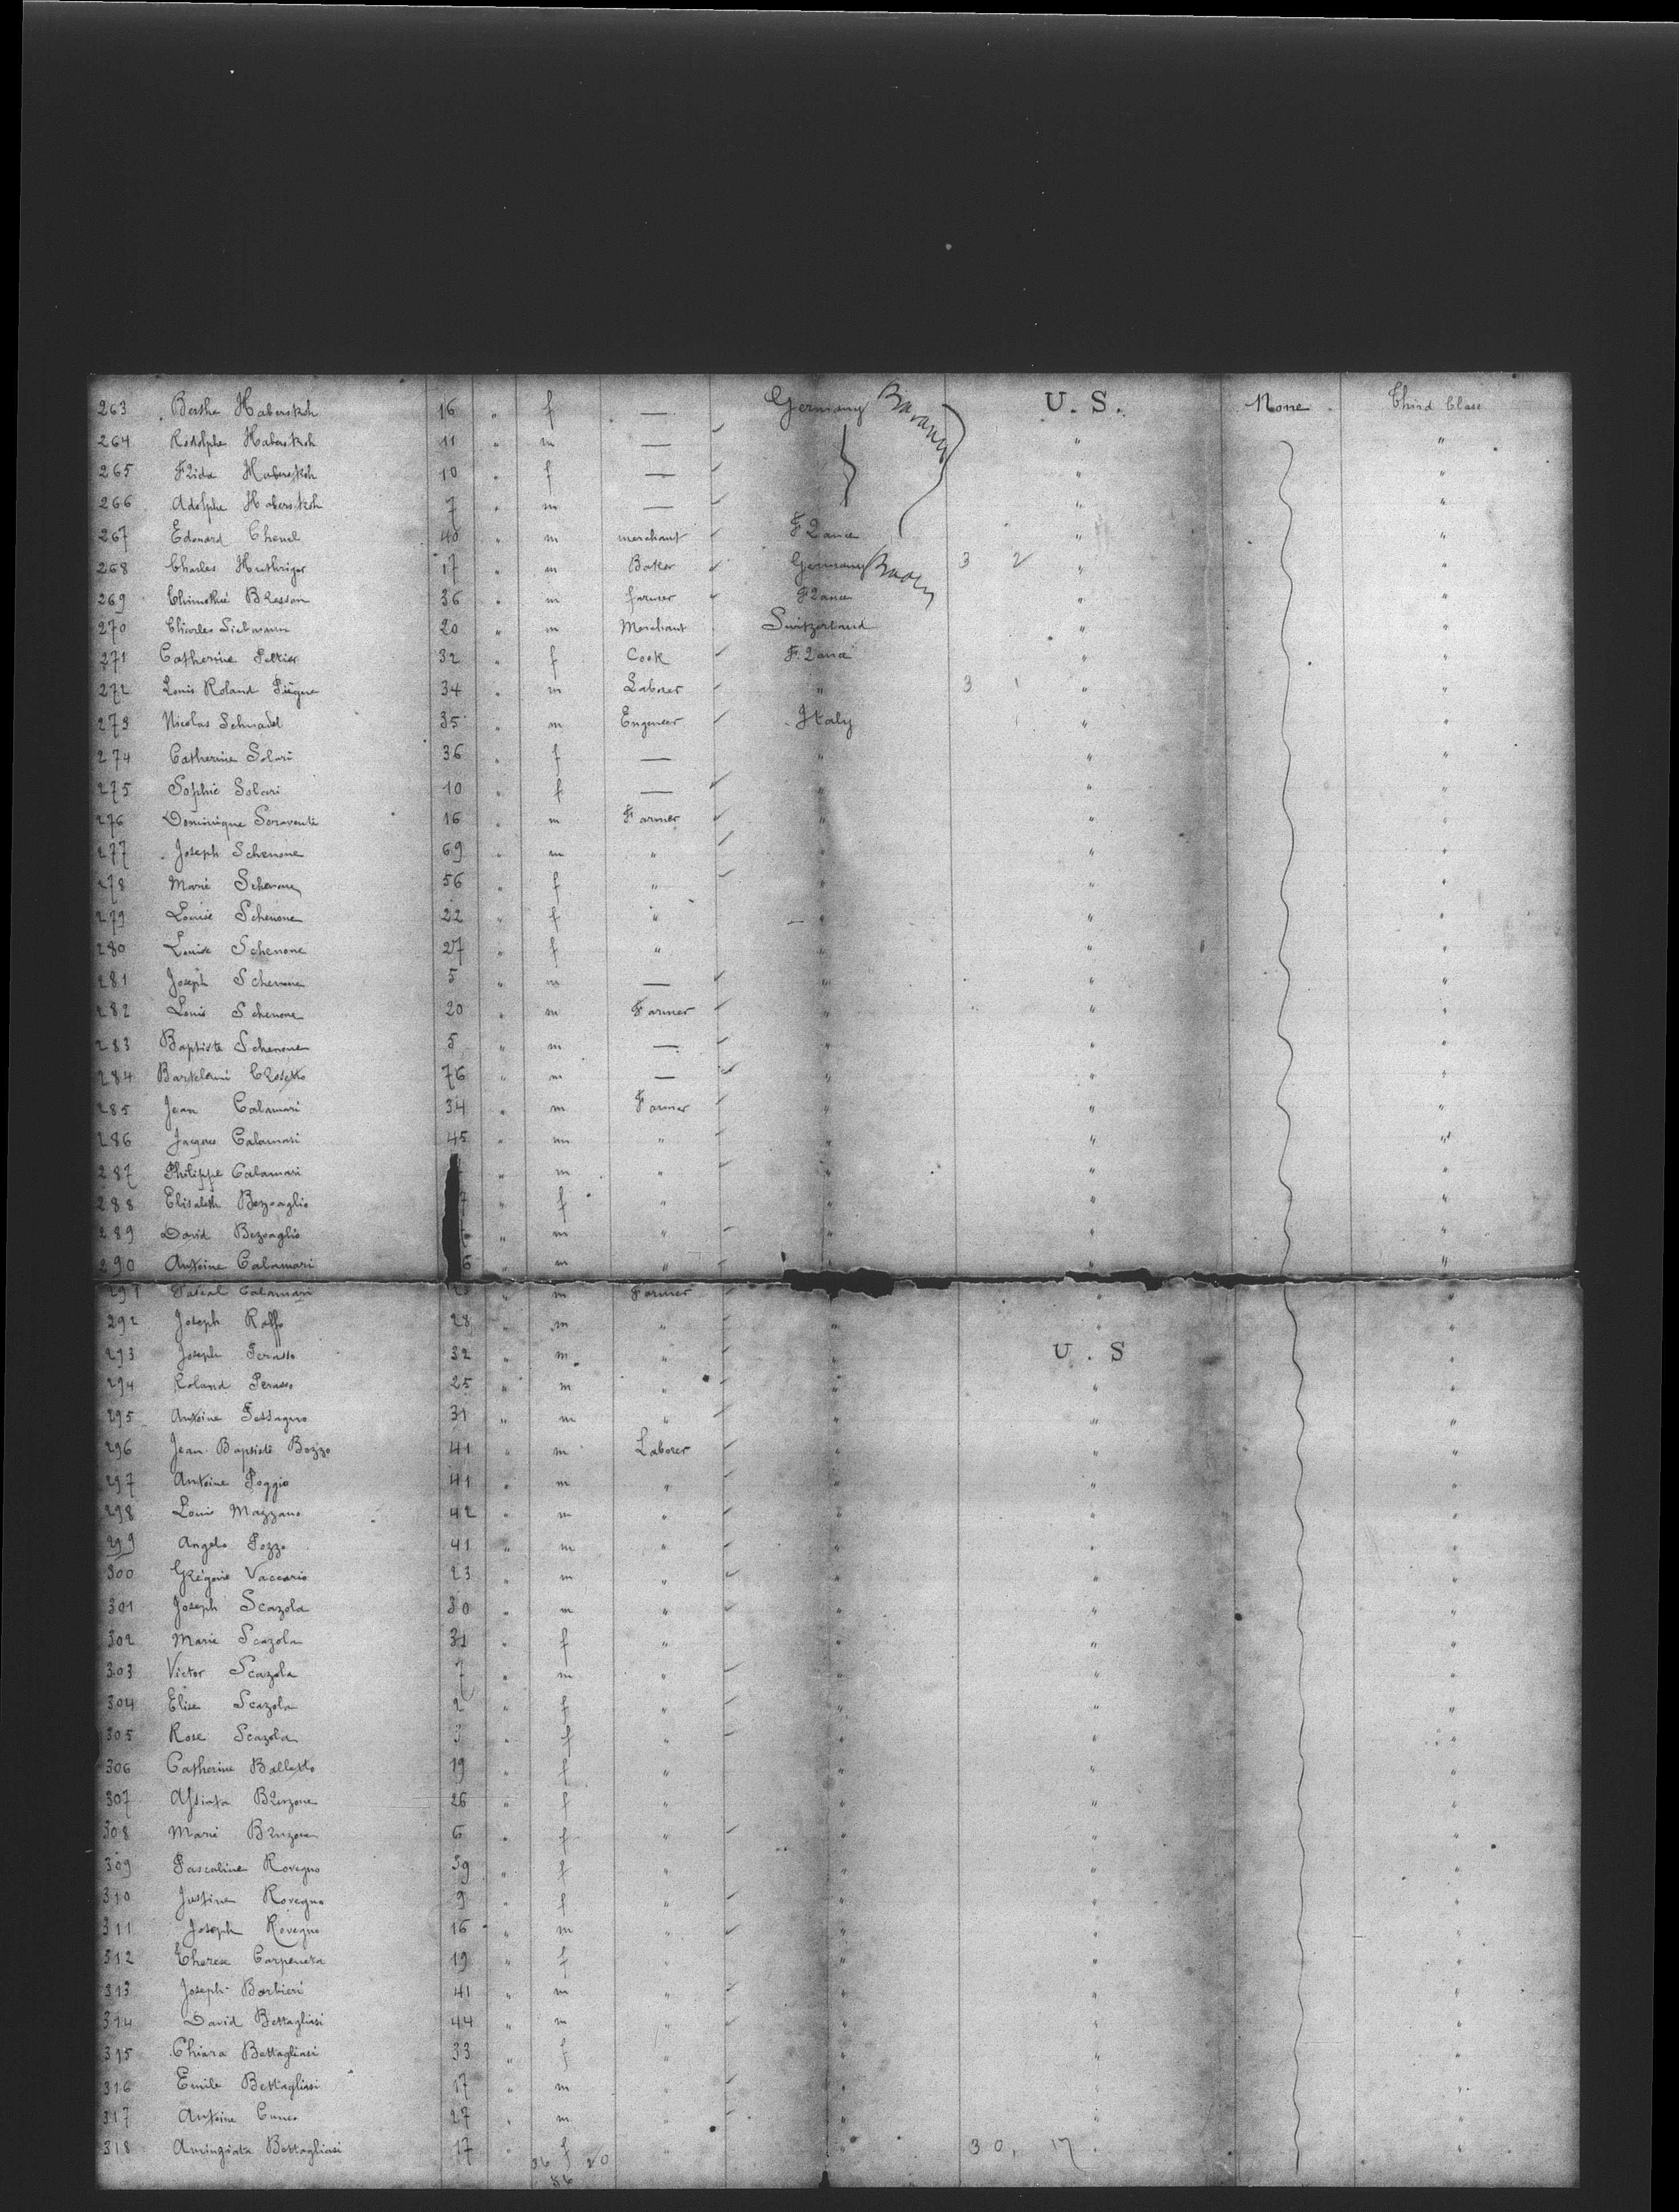 263 Bertha Haberstroh 16 " f — Germany Bavaria U. S. None Third Class
264 Rodolphe Haberstroh 11 " m — " "
265 Frida Haberstroh 10 " f — " "
266 Adolphe Haberstroh 7 " m — " "
267 Edouard Chenel 40 " m merchant France " "
268 Charles Huthriger 17 " m Baker Germany Baden 3 2 " "
269 Thimothée Bresson 36 " m farmer France " "
270 Charles 20 " m Merchant Switzerland " "
271 Catherine Peltier 32 " f Cook France " "
272 Louis Roland 34 " m Laborer " 3 1 " "
273 Nicolas Schnadel 35 " m Engeneer Italy " "
274 Catherine Solari 36 " f — " " "
275 Sophie Solari 10 " f — " " "
276 Dominique 16 " m Farmer " " "
277 Joseph Schenone 69 " m " " " "
278 Marie Schenone 56 " f " " " "
279 Louise Schenone 22 " f " " " "
280 Louise Schenone 27 " f " " " "
281 Joseph Schenone 5 " m — " " "
282 Louis Schenone 20 " m Farmer " " "
283 Baptiste Schenone 5 " m — " " "
284 76 " m — " " "
285 Jean Calamari 34 " m Farmer " " "
286 Jacques Calamari 45 " m " " " "
287 Philippe Calamari " m " " " "
288 Elisabeth Bezoaglio 7 " f " " " "
289 David Bezoaglio " m " " " "
290 Antoine Calamari 6 " m " " " "
291 Pascal Calamari " m Farmer " "
292 Joseph Raffo 28 " m " " " "
293 Joseph Perasso 32 " m " " U. S "
294 Roland Perasso 25 " m " " " "
295 Antoine Pessagno 31 " m " " " "
296 Jean Baptiste Bozzo 41 " m Laborer " " "
297 Antoine Poggio 41 " m " " " "
298 Louis Mazzano 42 " m " " " "
299 Angelo Pozzo 41 " m " " " "
300 Grégoire Vaccario 23 " m " " " "
301 Joseph Scazola 30 " m " " " "
302 Marie Scazola 31 " f " " " "
303 Victor Scazola 7 " m " " " "
304 Elise Scazola 2 " f " " " "
305 Rose Scazola 3 " f " " " "
306 Catherine Balletto 19 " f " " " "
307 Assinta Bruzone 26 " f " " " "
308 Marie Bruzone 6 " f " " " "
309 Pascaline Rovegno 39 " f " " " "
310 Justine Rovegno 9 " f " " " "
311 Joseph Rovegno 16 " m " " " "
312 Therese Carpeneta 19 " f " " " "
313 Joseph Barbieri 41 " m " " " "
314 David Bettagliasi 44 " m " " " "
315 Chiara Bettagliasi 33 " f " " " "
316 Emile Bettagliasi 17 " m " " " "
317 Antoine Cuneo 27 " m " " " "
318 Bettagliasi 17 " f " " 30, 17 " "
36 20
56